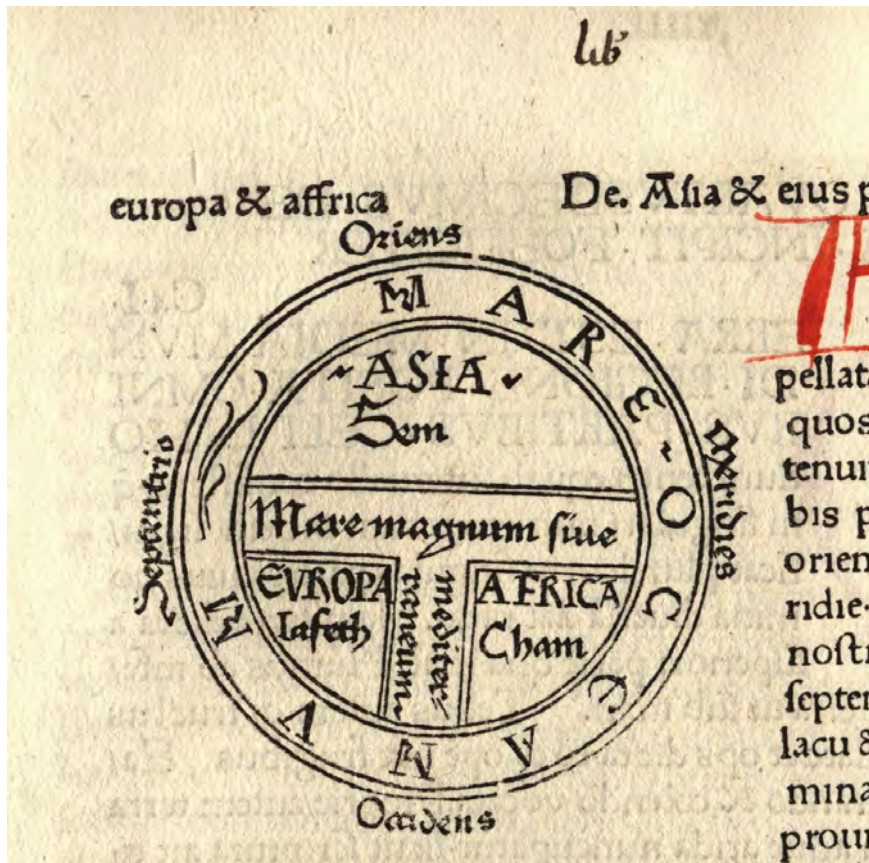 lib
europa & affrica
De. Asia & eius p
Oriens
MARE OCEANVM
ASIA
Sem
Septentrio
Meridies
Mare magnum siue
mediter
raneum
EVROPA
Iafeth
AFRICA
Cham
Occidens
TH
pellata
quos
tenuit
bis p
orien
ridie
nostr
septen
lacu &
mina
prouin